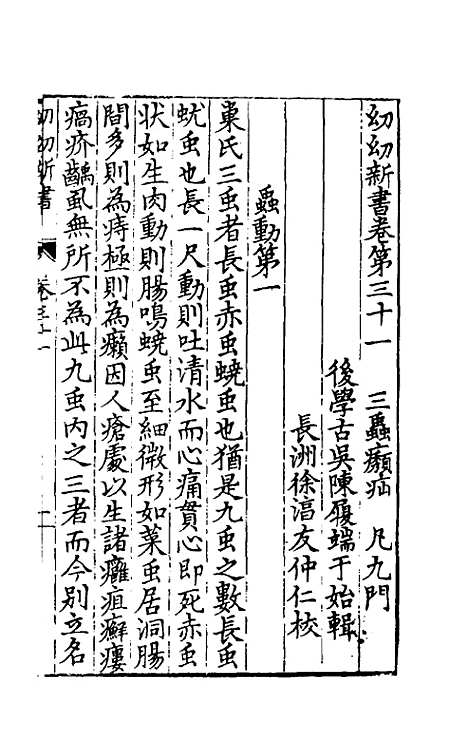 幼幼新書卷第三十一　三蟲癩疝　凡九門
後學古吳陳履端于始輯
長洲徐㴞友仲仁校
蟲動第一
巢氏三虫者長虫赤虫蟯虫也猶是九虫之數長虫
蚘虫也長一尺動則吐清水而心痛貫心即死赤虫
状如生肉動則腸鳴蟯虫至細微形如菜虫居洞腸
間多則為痔極則為癩因人瘡處以生諸癰疽癬瘻
瘑疥齲虱無所不為此九虫內之三者而今别立名
幼幼新書　卷三十一　一